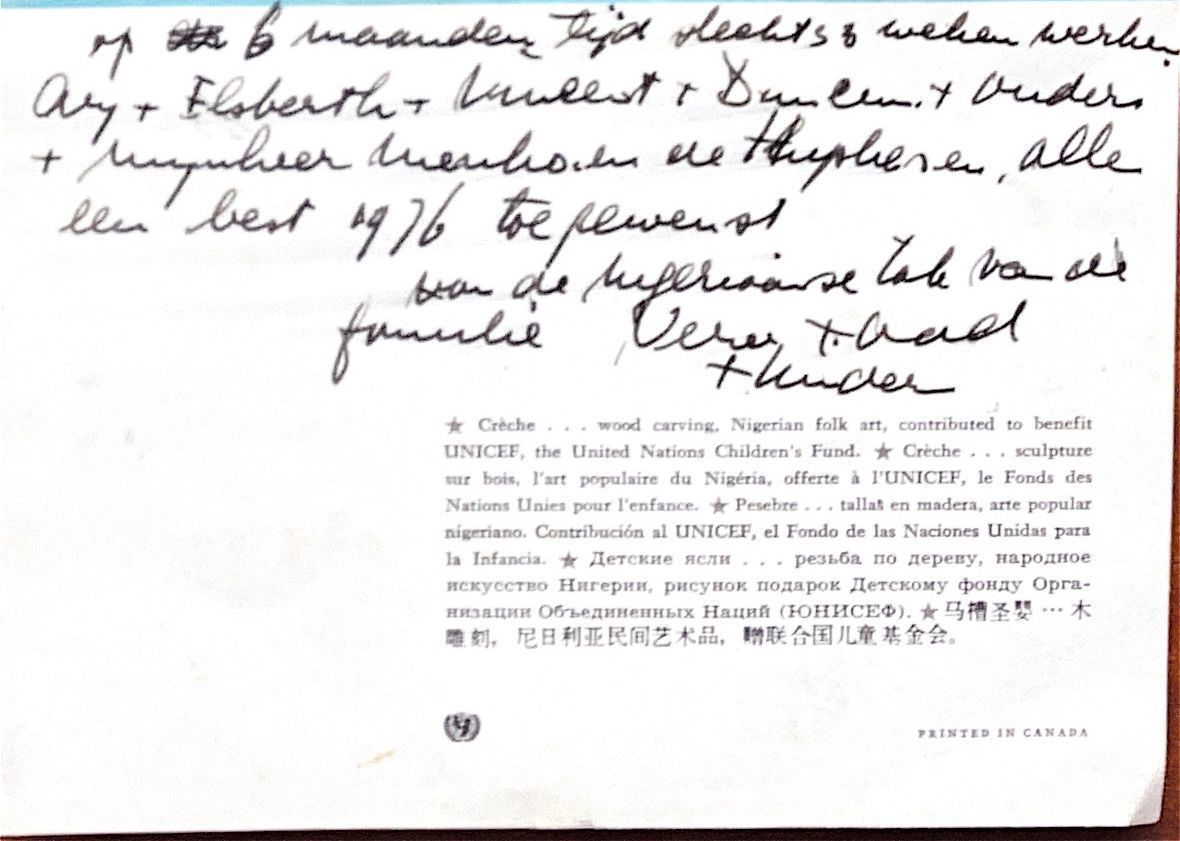 op 6 maanden tijd slechts 3 weken werken.
Ary + Elsberth + Vincent + Duncan + Ouders
+ Mynheer en de , alle
een best 1976 toegewenst
van de Nigeriaanse tak van de
familie Vera + Aad
+ kinder
★ Crèche . . . wood carving, Nigerian folk art, contributed to benefit
UNICEF, the United Nations Children's Fund. ★ Crèche . . . sculpture
sur bois, l'art populaire du Nigéria, offerte à l'UNICEF, le Fonds des
Nations Unies pour l'enfance. ★ Pesebre . . . tallas en madera, arte popular
nigeriano. Contribución al UNICEF, el Fondo de las Naciones Unidas para
la Infancia. ★ Детские ясли . . . резьба по дереву, народное
искусство Нигерии, рисунок подарок Детскому фонду Орга-
низации Объединенных Наций (ЮНИСЕФ). ★ 马槽圣婴 … 木
雕刻, 尼日利亚民间艺术品, 赠联合国儿童基金会。
PRINTED IN CANADA